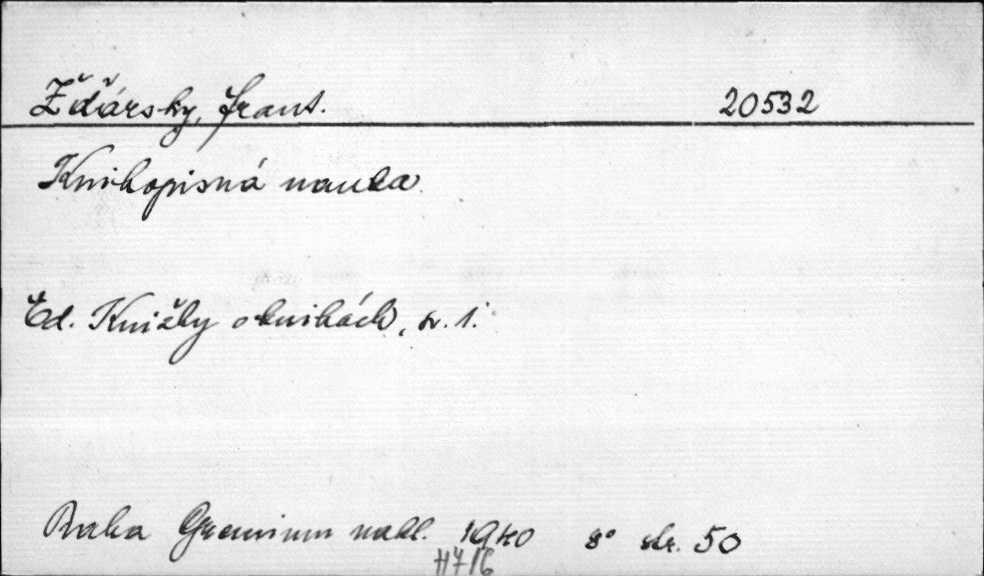 Žďárský, Frant. 20532
Knihopisná nauka
Ed. Knížky o knihách, sv. 1.
Praha Gremium nakl. 1940 8° str. 50
H716